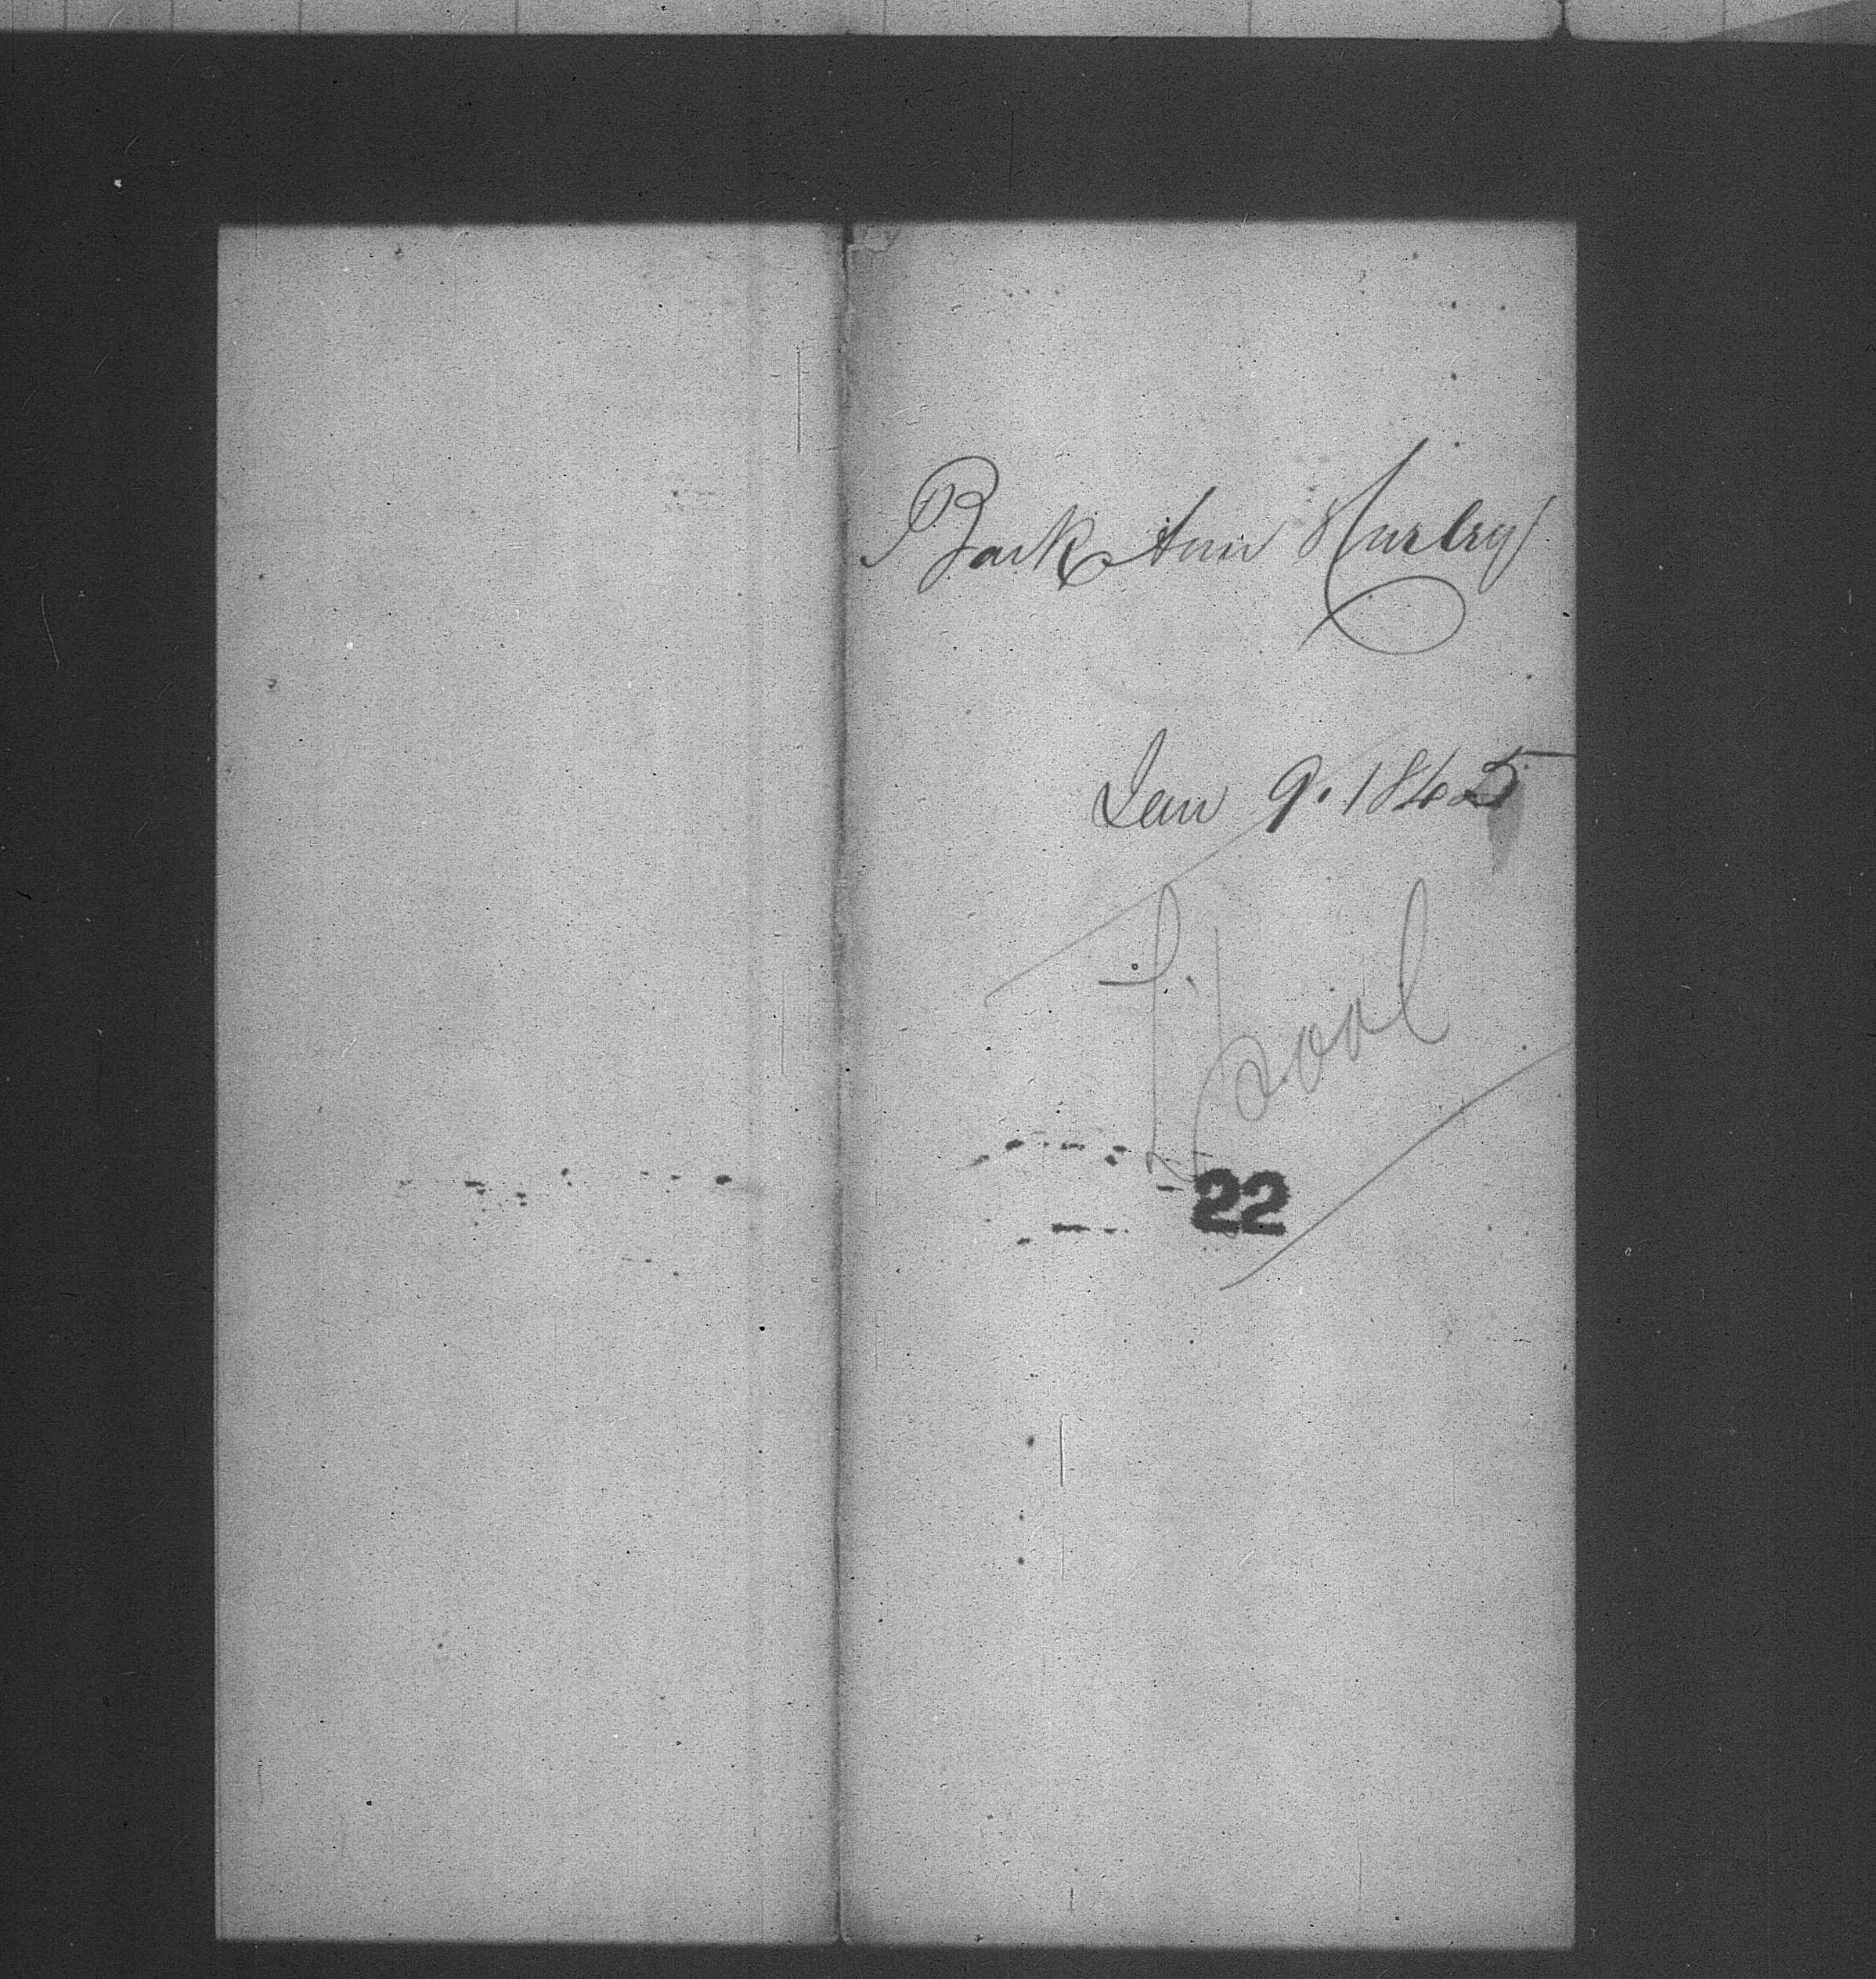 Bark Ann Harley
Jan 9. 1845
L. Pool
22